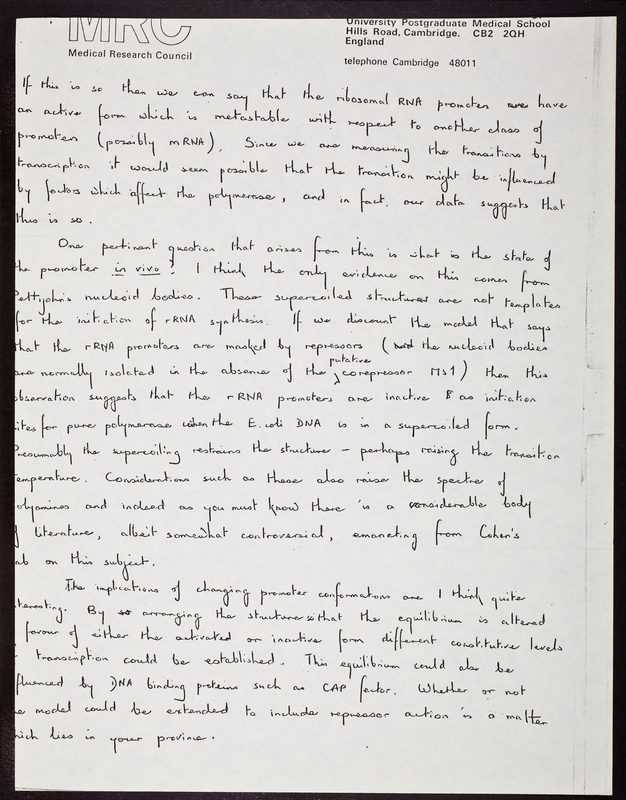 MRC
Medical Research Council
University Postgraduate Medical School
Hills Road, Cambridge. CB2 2QH
England
telephone Cambridge 48011
If this is so then we can say that the ribosomal RNA promoters have
an active form which is metastable with respect to another class of
promoters (possibly mRNA). Since we are measuring the transitions by
transcription it would seem possible that the transition might be influenced
by factors which affect the polymerase, and in fact, our data suggests that
this is so.
One pertinent question that arises from this is what is the state of
the promoter in vivo? I think the only evidence on this comes from
Pettijohn's nucleoid bodies. These supercoiled structures are not templates
for the initiation of rRNA synthesis. If we discount the model that says
that the rRNA promoters are masked by repressors (the nucleoid bodies
are normally isolated in the absence of the putative corepressor MS1) then this
observation suggests that the rRNA promoters are inactive as initiation
sites for pure polymerase when the E. coli DNA is in a supercoiled form.
Presumably the supercoiling restrains the structure – perhaps raising the transition
temperature. Considerations such as these also raise the spectre of
olyamines and indeed as you must know there is a considerable body
f literature, albeit somewhat controversial, emanating from Cohen's
ab on this subject.
The implications of changing promoter conformations are I think quite
teresting. By arranging the structure so that the equilibrium is altered
favour of either the activated or inactive form different constitutive levels
transcription could be established. This equilibrium could also be
fluenced by DNA binding proteins such as CAP factor. Whether or not
e model could be extended to include repressor action is a matter
hich lies in your province.